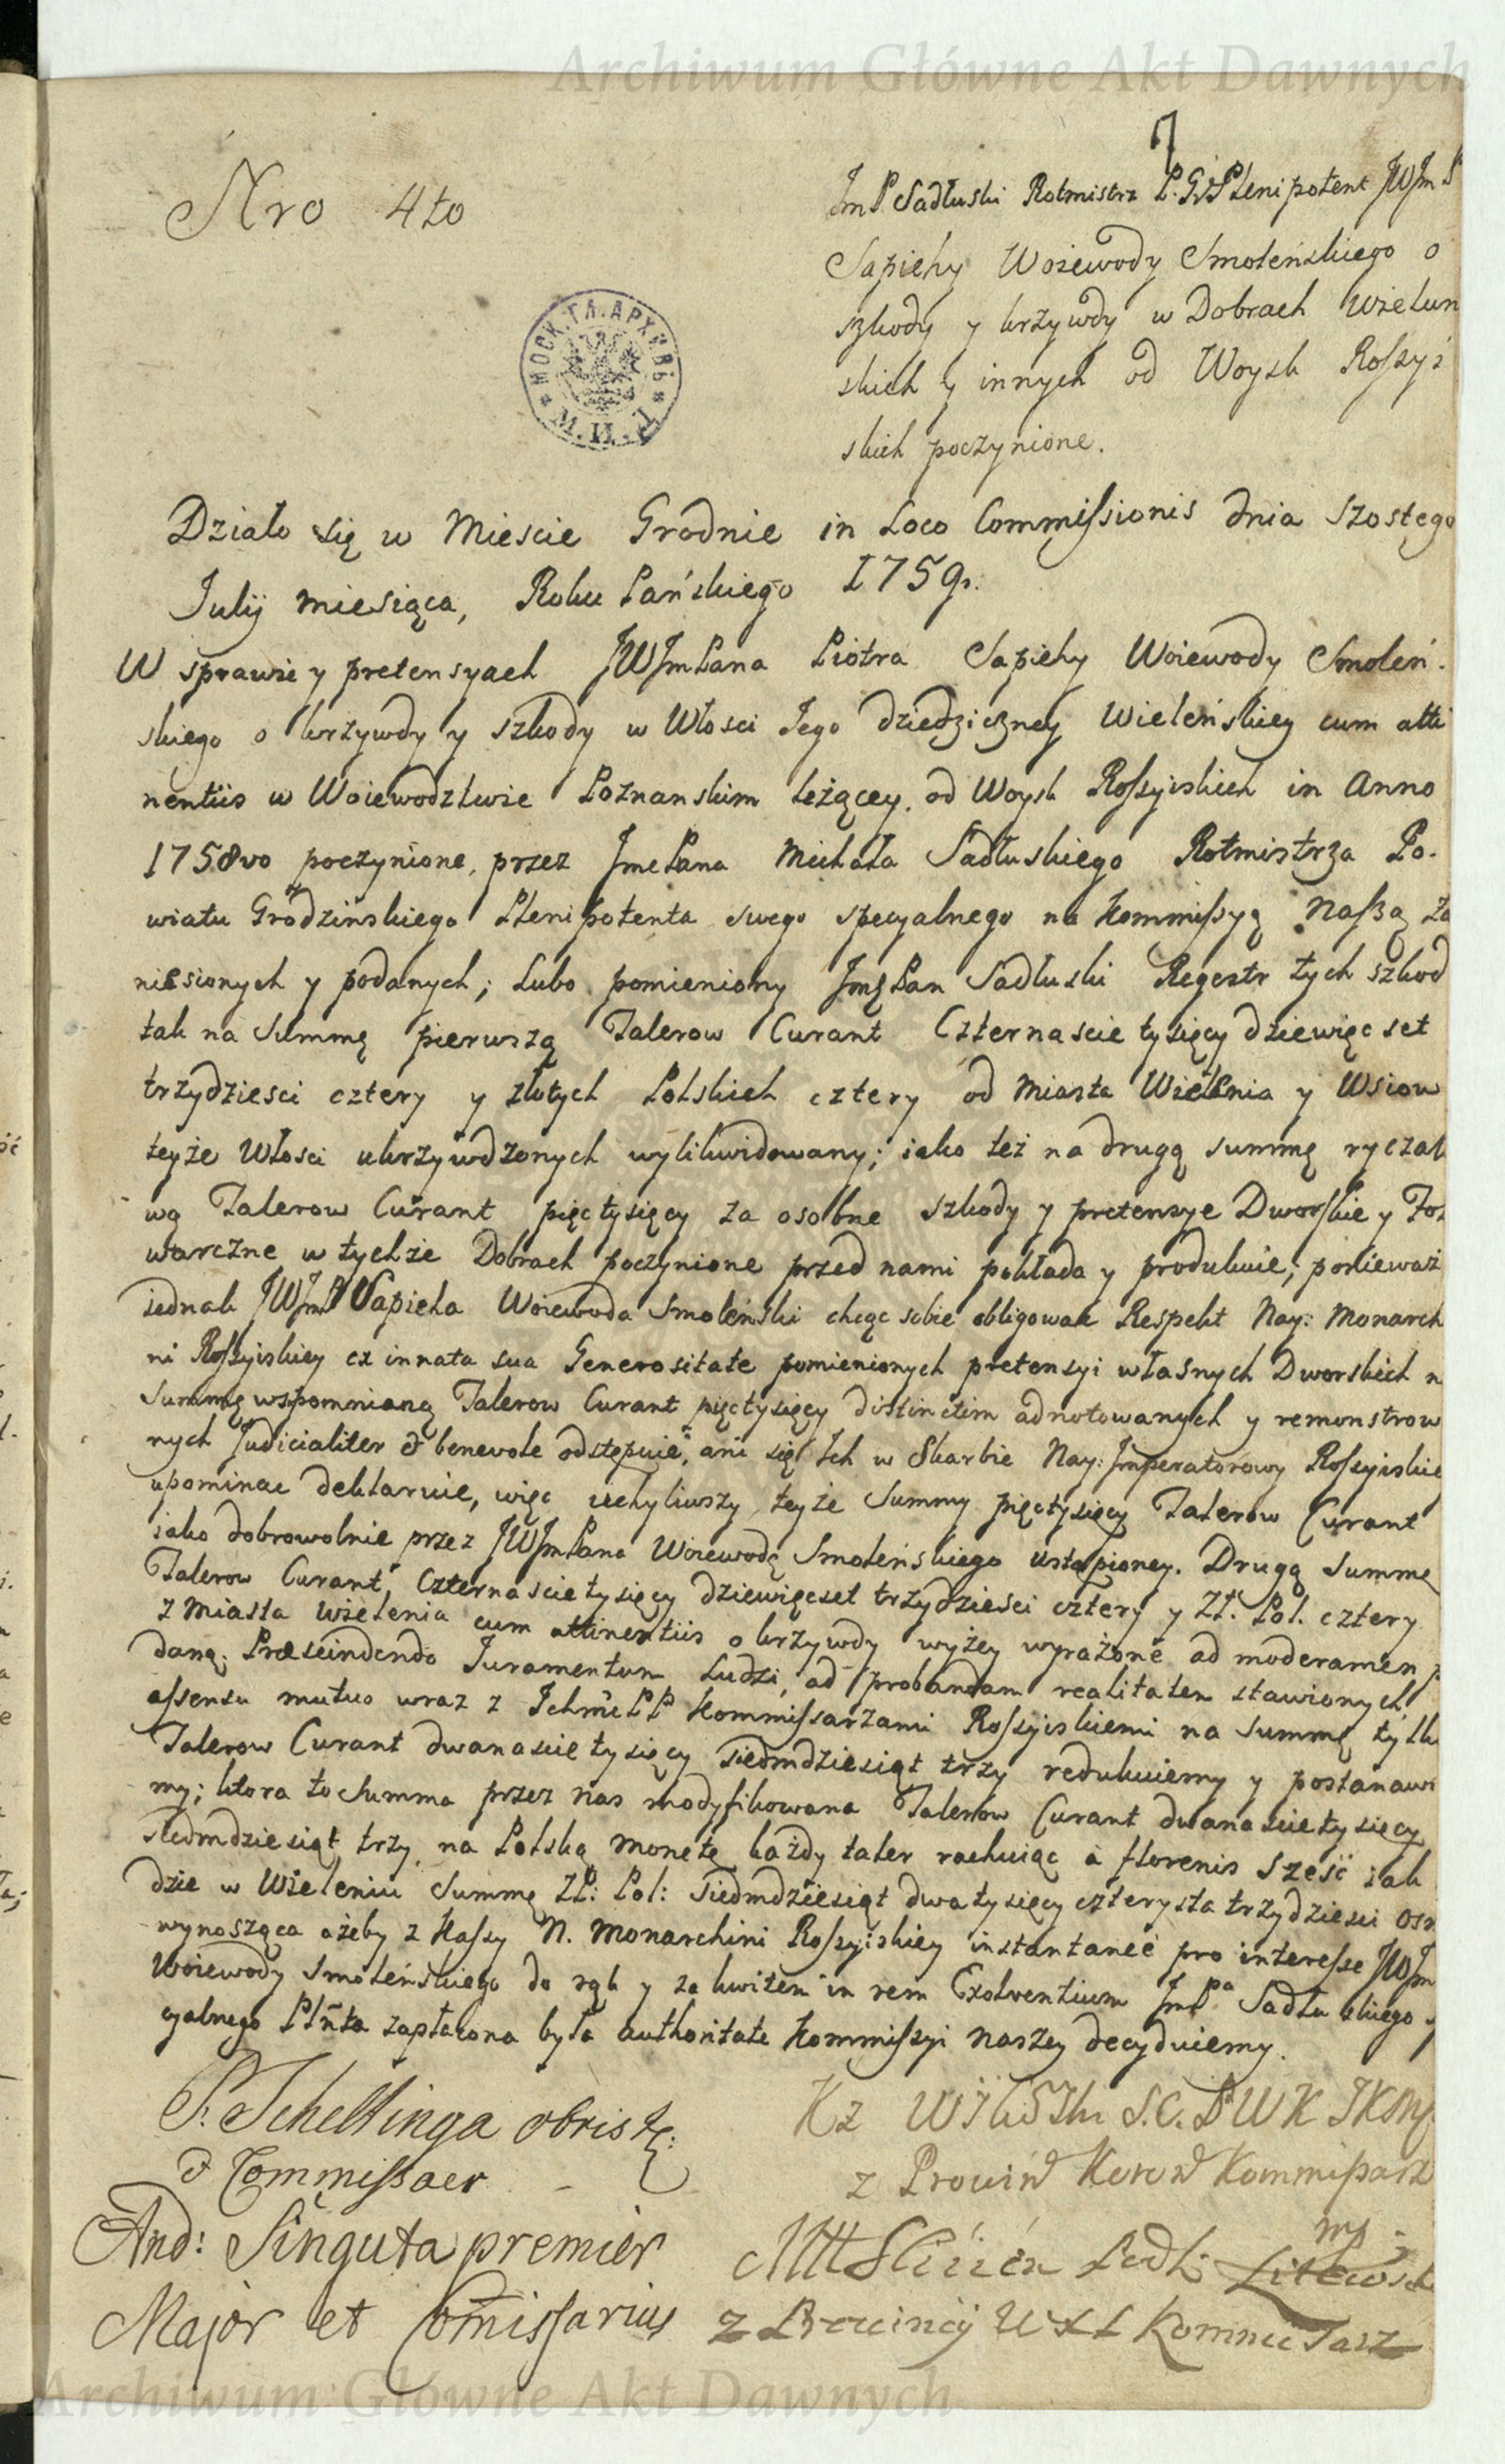 Archiwum Główne Akt Dawnych
7
Nro 4to
Jm P. Sadłuski Rotmistrz P. G. Plenipotent JWJm P
Sapiehy Woiewody Smoleńskiego o
szkody y krzywdy w Dobrach Wielun
skich y innych od Woysk Roſsyi
skich poczynione.
МОСК. ГЛ. АРХИВЪ
М. И. Д.
Działo się w Mieście Grodnie in Loco Commiſsionis dnia Szostego
Julij miesiąca, Roku Pańskiego 1759.
W sprawie y pretensyach JWJmPana Piotra Sapiehy Woiewody Smoleń.
skiego o krzywdy y szkody w Włosci Jego dziedziczney Wieleńskiey cum atti
nentiis w Woiewodztwie Poznanskim leżącey, od Woysk Roſsyiskich in Anno
1758vo poczynione, przez JmcPana Michała Sadłuskiego Rotmistrza Po.
wiatu Grodzińskiego Plenipotenta swego specyalnego na Kommiſsyą Naſzą za
niesionych y podanych; lubo pomieniony JmςPan Sadłuski Regestr tych szkod
tak na Summę pierwszą Talerow Curant Czternascie tysięcy dziewięc set
trzydziesci cztery y złotych Polskich cztery od Miasta Wielenia y Wsiow
teyże Włosci ukrzywdzonych wylikwidowany; iako też na drugą summę ryczał
wą Talerow Curant pięc tysięcy za osobne szkody y pretensye Dworſkie y Fol
warczne w tychże Dobrach poczynione przed nami pokłada y produkuie; ponieważ
iednak JWJmP Sapieha Woiewoda Smoleński chcąc sobie obligowac Respekt Nay: Monarch
ni Roſsyiskiey ex innata sua Generositate pomienionych pretensyi własnych Dworskich n
Summę wspomnianą Talerow Curant pięctysięcy distinctim adnotowanych y remonstrow
nych Judicialiter & benevole odstępuie, ani się Ich w Skarbie Nay: Jmperatorowy Roſsyiskie
upominac deklaruie, więc uchyliwszy teyże Summy pięctysięcy Talerow Curant
iako dobrowolnie przez JWJmPana Woiewodę Smoleńskiego ustąpioney. Drugą Summę
Talerow Curant, Czternascie tysięcy dziewięcset trzydziesci cztery y Zł: Pol. cztery
z Miasta Wielenia cum attinentiis o krzywdy wyżey wyrażone ad moderamen p
daną; Præscindendo Juramentum Ludzi, ad probandam realitatem stawionych
aſsensu mutuo wraz z Ichmć PP Kommiſsarzami Roſsyiskiemi na Summę tylk
Talerow Curant dwanascie tysięcy siedmdziesiąt trzy redukuiemy y postanawi
my; ktora to Summa przez nas modyfikowana Talerow Curant dwanascie tysięcy
siedmdziesiąt trzy, na Polską monetę każdy taler rachuiąc à florenis sześć iak
dzie w Wieleniu Summę Zł: Pol: siedmdziesiąt dwa tysięcy czterysta trzydziesci osm
wynosząca ażeby z Kaſsy N. Monarchini Roſsyiskiey instantaneè pro intereſse JWJm
Woiewody Smoleńskiego do rąk y za kwitem in rem Exolventium JmPa Sadłuskiego s
cyalnego Plñta zapłacona była authoritate Kommiſsyi naszey decyduiemy.
P. Scheltinga obrist
& Commiſsaer
And: Singuta premier
Major et Com̃iſsarius
z Prowin Koron Kommiſsarz
mp
z Prowincij W X L Kommissarz
Archiwum Główne Akt Dawnych